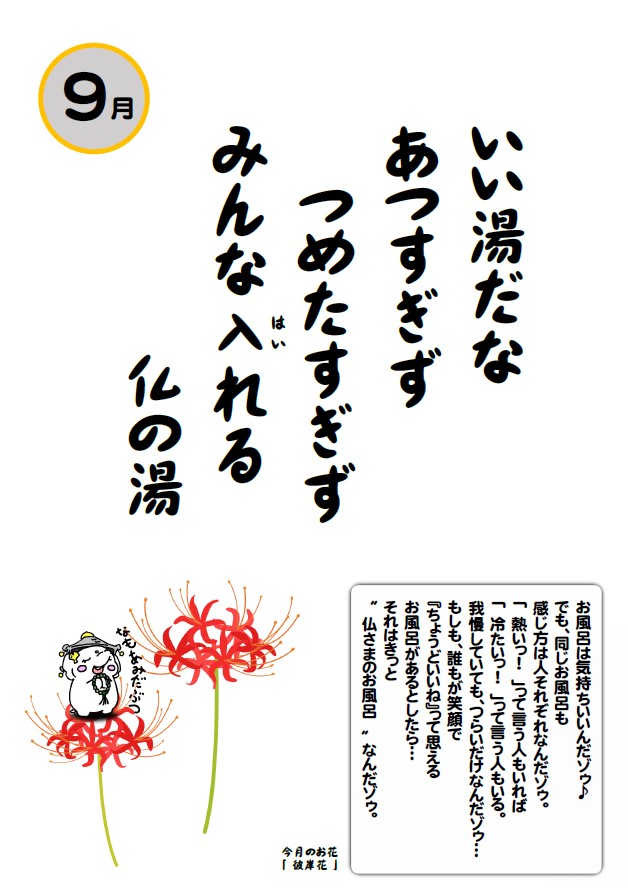 9月
いい湯だな
あつすぎず
つめたすぎず
みんな入れる
はい
仏の湯
お風呂は気持ちいいんだゾウ♪
でも、同じお風呂も
感じ方は人それぞれなんだゾウ。
「熱いっ！」って言う人もいれば
「冷たいっ！」って言う人もいる。
我慢していても、つらいだけなんだゾウ…
もしも、誰もが笑顔で
『ちょうどいいね』って思える
お風呂があるとしたら…
それはきっと
〝仏さまのお風呂〟なんだゾゥ。
なもあみだぶつ
今月のお花
「彼岸花」